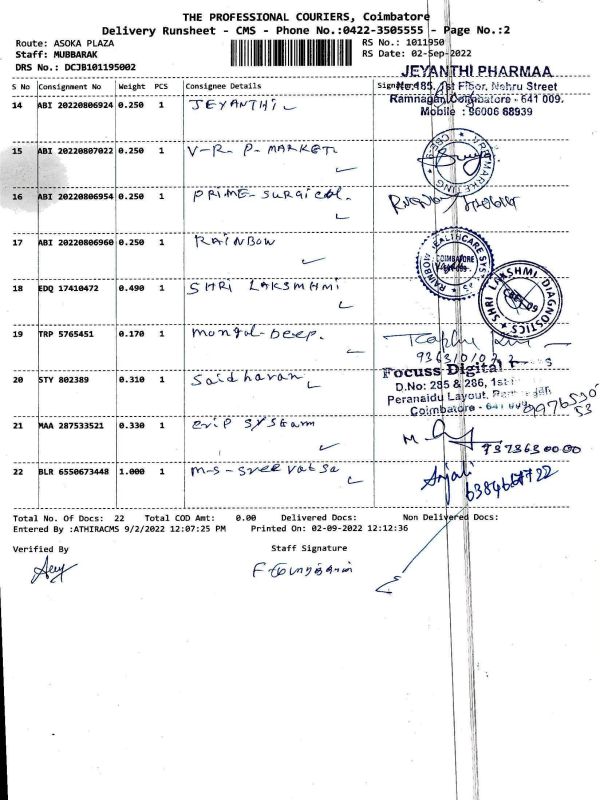 THE PROFESSIONAL COURIERS, Coimbatore
Delivery Runsheet - CMS - Phone No.:0422-3505555 - Page No.:2
Route: ASOKA PLAZA
RS No.: 1011950
Staff: MUBBARAK
RS Date: 02-Sep-2022
DRS No.: DCJB101195002
JEYANTHI PHARMAA
S No Consignment No Weight PCS Consignee Details
No:185, 1st Floor, Nehru Street
Ramnagar, Coimbatore - 641 009.
Mobile : 96006 68939
14 ABI 20220806924 0.250 1 JEYANTHI
15 ABI 20220807022 0.250 1 V-R. P- MARKET
16 ABI 20220806954 0.250 1 PRIME- SURGICAL.
17 ABI 20220806960 0.250 1 RAINBOW
RAINBOW HEALTHCARE SYS
COIMBATORE
18 EDQ 17410472 0.490 1 SHRI LAKSMHMI
SHRI LAKSHMI DIAGNOSTICS
CBE-09
19 TRP 5765451 0.170 1 Mongal-Deep.
Focuss Digital
20 STY 802389 0.310 1 Saidharan
D.No: 285 & 286, 1st
Peranaidu Layout,
Coimbatore - 641 009
21 MAA 287533521 0.330 1 erip System
9373630000
22 BLR 6550673448 1.000 1 M-S-Sree Vatsa
Anjali
Total No. Of Docs: 22 Total COD Amt: 0.00 Delivered Docs: Non Delivered Docs:
Entered By :ATHIRACMS 9/2/2022 12:07:25 PM Printed On: 02-09-2022 12:12:36
Verified By Staff Signature